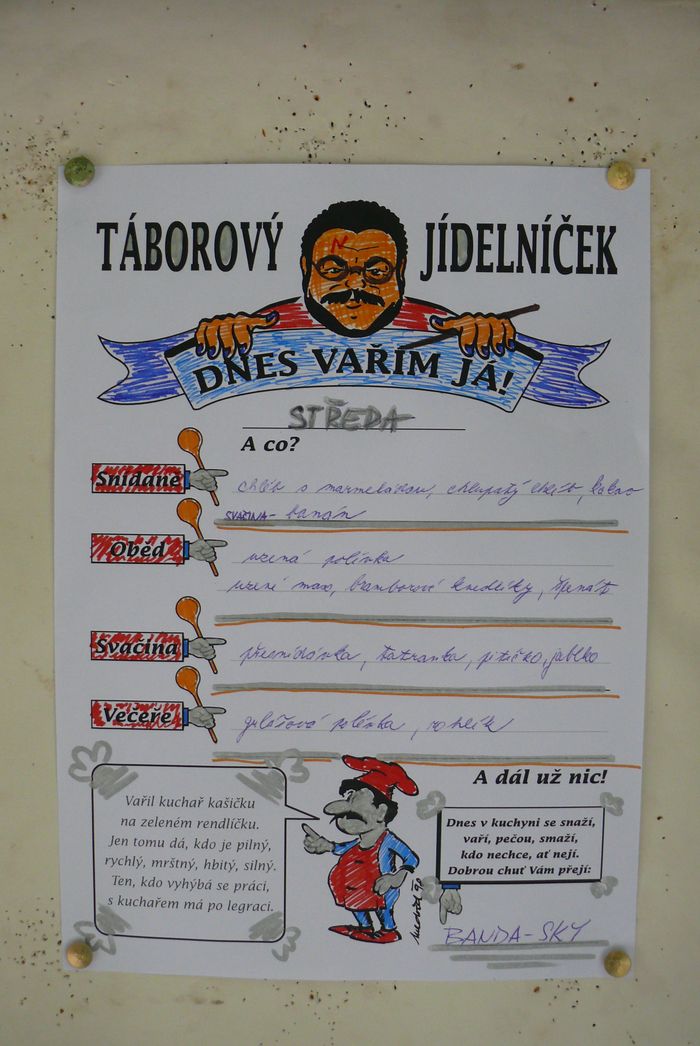 TÁBOROVÝ JÍDELNÍČEK
DNES VAŘÍM JÁ!
STŘEDA
A co?
Snídaně
chléb s marmeládou, chlupatý chléb, kakao
SVAČINA - banán
Oběd
uzená polévka
uzené maso, bramborové knedlíky, špenát
Svačina
přesnídávka, tatranka, pitíčko, jablko
Večeře
gulášová polévka, rohlík
A dál už nic!
Vařil kuchař kašičku
na zeleném rendlíčku.
Jen tomu dá, kdo je pilný,
rychlý, mrštný, hbitý, silný.
Ten, kdo vyhýbá se práci,
s kuchařem má po legraci.
Dnes v kuchyni se snaží,
vaří, pečou, smaží,
kdo nechce, ať nejí.
Dobrou chuť Vám přejí:
BANDA-SKY